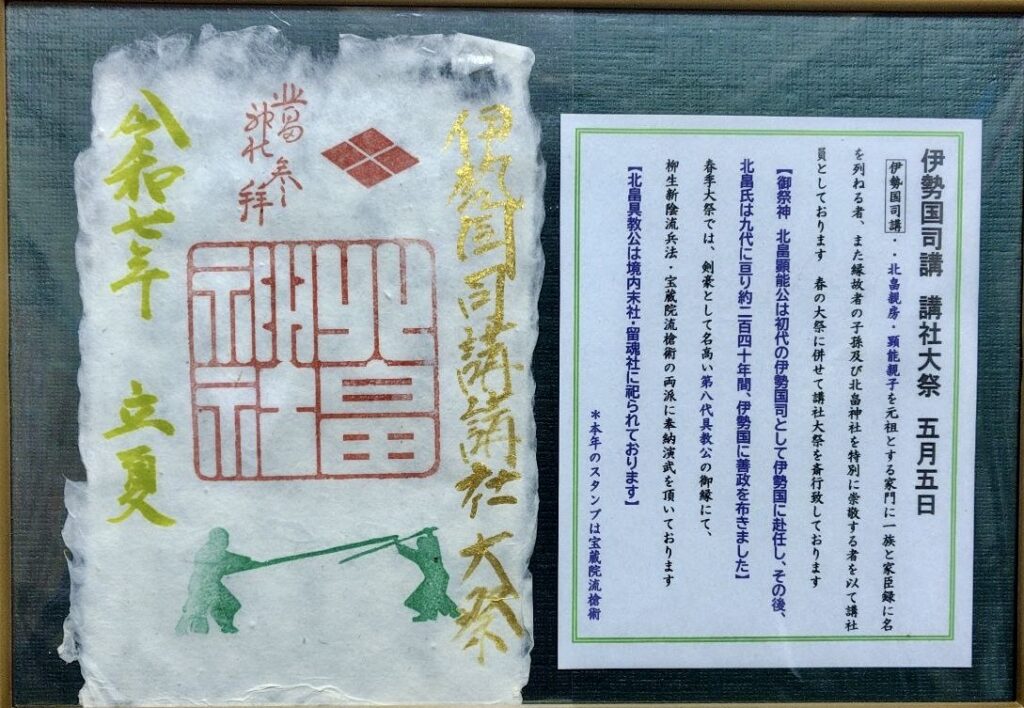 伊勢国司講　講社大祭　五月五日
伊勢国司講・・北畠親房・顕能親子を元祖とする家門に一族と家臣録に名
を列ねる者、また縁故者の子孫及び北畠神社を特別に崇敬する者を以て講社
員としております　春の大祭に併せて講社大祭を斎行致しております
【御祭神　北畠顕能公は初代の伊勢国司として伊勢国に赴任し、その後、
北畠氏は九代に亘り約二百四十年間、伊勢国に善政を布きました】
春季大祭では、剣豪として名高い第八代具教公の御縁にて、
柳生新陰流兵法・宝蔵院流槍術の両派に奉納演武を頂いております
【北畠具教公は境内末社・留魂社に祀られております】
＊本年のスタンプは宝蔵院流槍術
伊勢国司講講社大祭
北畠
神社
参拝
北畠
神社
令和七年　立夏